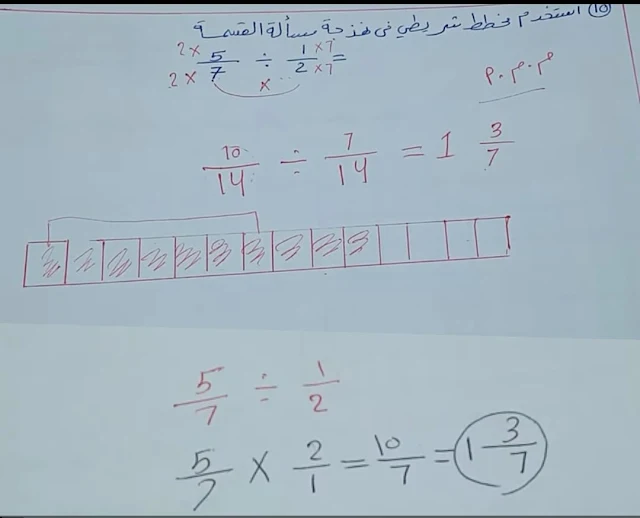 ١٥ استخدم مخطط شريطي في نمذجة مسألة القسمة
2× 5/7 2× ÷ 1/2 ×7 ×7 =
×
م.م.م
10/14 ÷ 7/14 = 1 3/7
5/7 ÷ 1/2
5/7 × 2/1 = 10/7 = 1 3/7